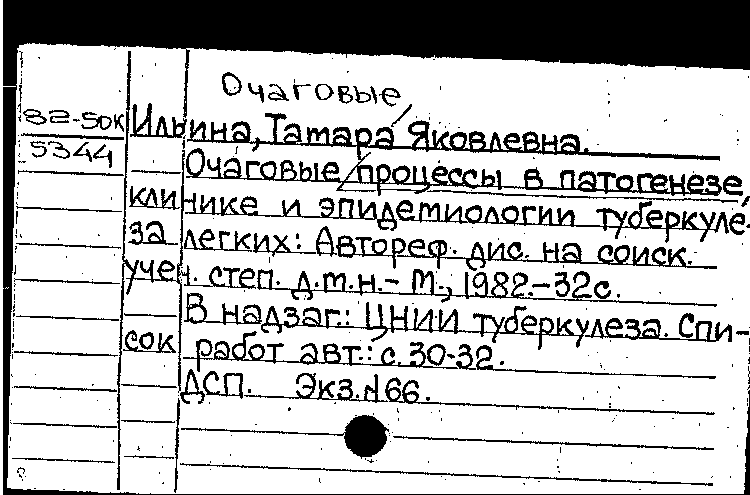 Очаговые
82-50к Ильина, Тамара Яковлевна.
5344 Очаговые процессы в патогенезе,
клинике и эпидемиологии туберкуле-
за легких: Автореф. дис. на соиск.
учен. степ. д.м.н.- М., 1982.-32с.
В надзаг.: ЦНИИ туберкулеза. Спи-
сок работ авт.: с.30-32.
ДСП. Экз.№66.